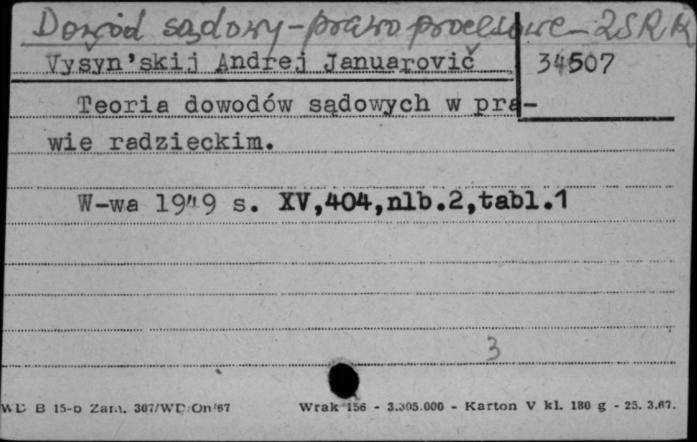 Dowód sądowy - prawo procesowe - ZSRR
Vysyn'skij Andrej Januarovič 34507
Teoria dowodów sądowych w pra-
wie radzieckim.
W-wa 1949 s. XV,404,nlb.2,tabl.1
3
WD B 15-b Zam. 307/WD/On/67 Wrak 156 - 3.305.000 - Karton V kl. 180 g - 25. 3.67.